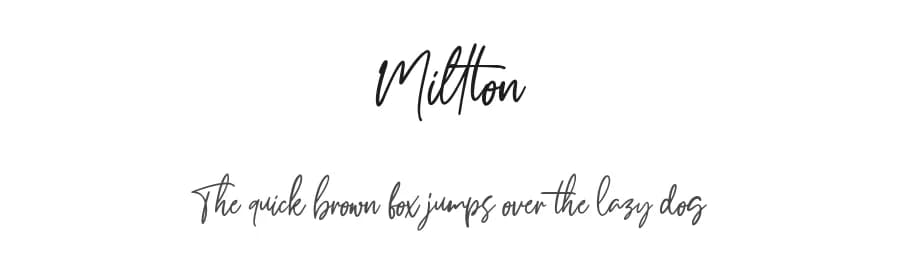 Miltton
The quick brown fox jumps over the lazy dog